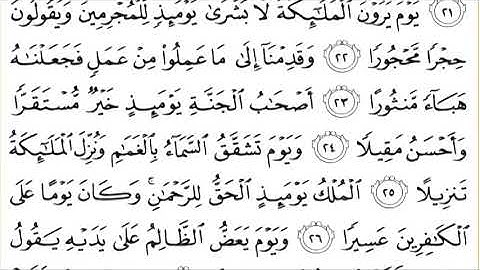 ٢١ يَوْمَ يَرَوْنَ ٱلْمَلَٰٓئِكَةَ لَا بُشْرَىٰ يَوْمَئِذٍ لِّلْمُجْرِمِينَ وَيَقُولُونَ
حِجْرًا مَّحْجُورًا ٢٢ وَقَدِمْنَآ إِلَىٰ مَا عَمِلُوا۟ مِنْ عَمَلٍ فَجَعَلْنَٰهُ
هَبَآءً مَّنثُورًا ٢٣ أَصْحَٰبُ ٱلْجَنَّةِ يَوْمَئِذٍ خَيْرٌ مُّسْتَقَرًّا
وَأَحْسَنُ مَقِيلًا ٢٤ وَيَوْمَ تَشَقَّقُ ٱلسَّمَآءُ بِٱلْغَمَٰمِ وَنُزِّلَ ٱلْمَلَٰٓئِكَةُ
تَنزِيلًا ٢٥ ٱلْمُلْكُ يَوْمَئِذٍ ٱلْحَقُّ لِلرَّحْمَٰنِ ۚ وَكَانَ يَوْمًا عَلَى
ٱلْكَٰفِرِينَ عَسِيرًا ٢٦ وَيَوْمَ يَعَضُّ ٱلظَّالِمُ عَلَىٰ يَدَيْهِ يَقُولُ